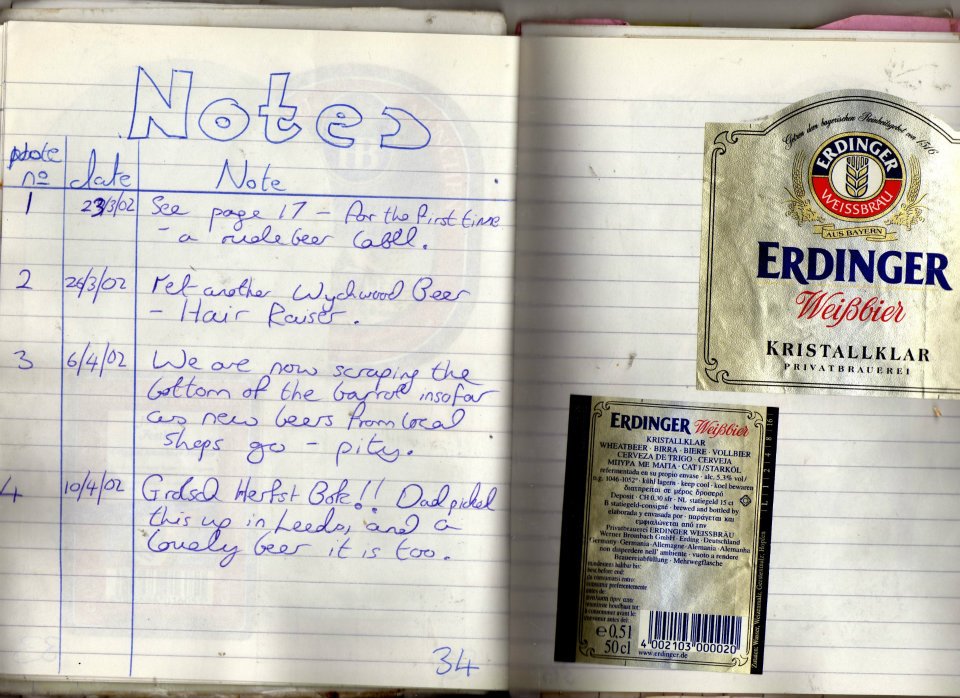 Notes
note
nº date Note
1 23/3/02 See page 17 - for the first time
- a rude beer label.
2 26/3/02 Yet another Wychwood Beer
- Hair Raiser.
3 6/4/02 We are now scraping the
bottom of the barrel insofar
as new beers from local
shops go - pity.
4 10/4/02 Grolsch Herfst Bok!! Dad picked
this up in Leeds, and a
lovely beer it is too.
34
ERDINGER
WEISSBRÄU
AUS BAYERN
ERDINGER
Weißbier
KRISTALLKLAR
PRIVATBRAUEREI
ERDINGER Weißbier
KRISTALLKLAR
WHEATBEER · BIRRA · BIERE · VOLLBIER
CERVEZA DE TRIGO · CERVEJA
ΜΠΥΡΑ ΜΕ ΜΑΓΙΑ · CAT I/STARKÖL
refermentada en su propio envase · alc. 5,3% vol/
o.g. 1046-1052° · kühl lagern · keep cool · koel bewaren
διατηρείται σε μέρος δροσερό
Deposit · CH 0,30 sfr · NL statiegeld 15 ct
B statiegeld-consigné · brewed and bottled by
elaborada y envasada por · παράγεται και
εμφιαλώνεται από την
Privatbrauerei ERDINGER WEISSBRÄU
Werner Brombach GmbH · Erding · Deutschland
Germany · Germania · Allemagne · Alemania · Alemanha
non disperdere nell' ambiente · vuoto a rendere
Brauereiabfüllung · Mehrwegflasche
mindestens haltbar bis:
best before end:
da consumarsi entro:
consumir preferentemente
antes de:
e 0,5l
50 cl
4 002103 000020
www.erdinger.de